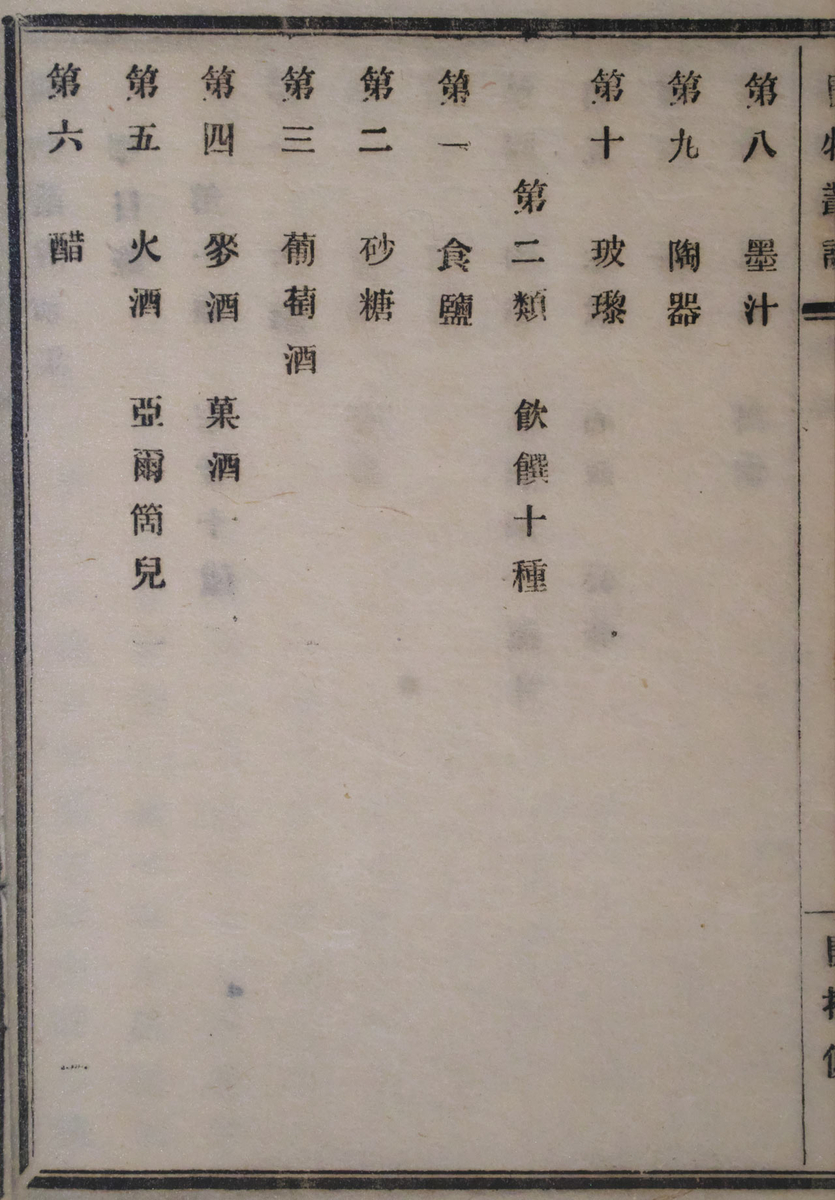 第八 墨汁
第九 陶器
第十 玻瓈
第二類 飲饌十種
第一 食鹽
第二 砂糖
第三 葡萄酒
第四 麥酒 菓酒
第五 火酒 亞爾箇兒
第六 醋